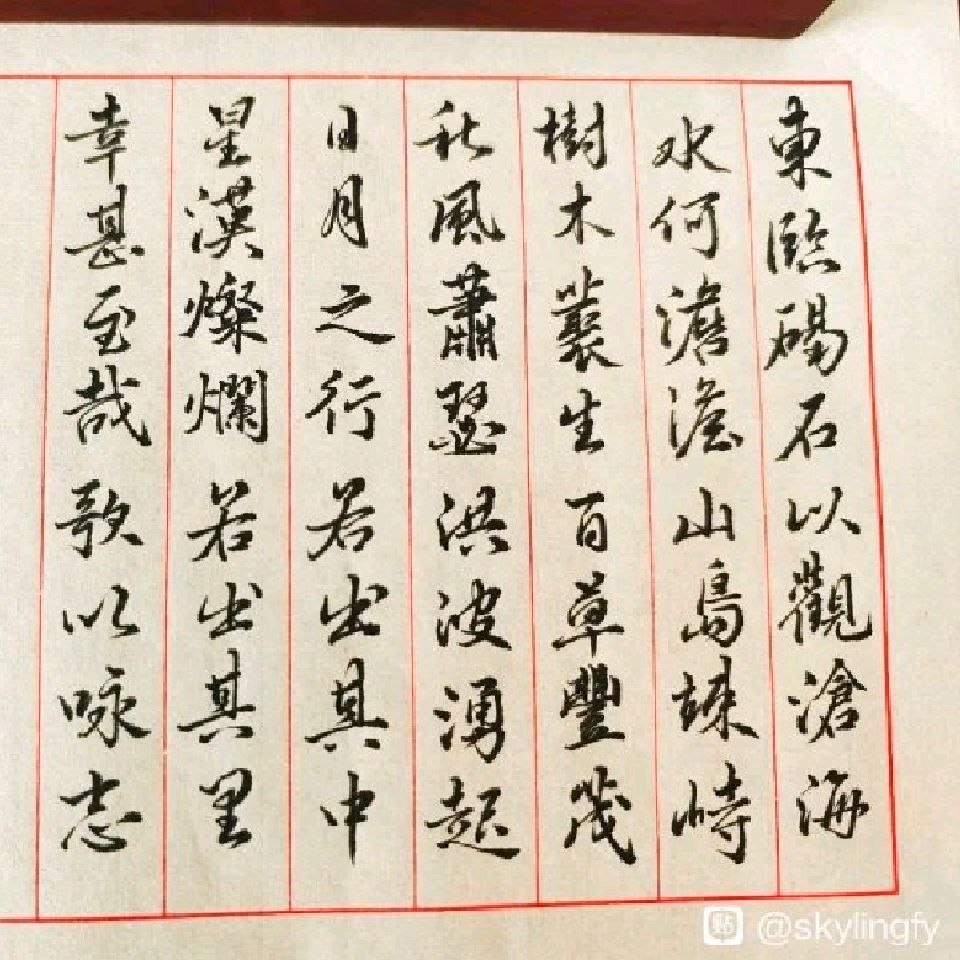 東臨碣石以觀滄海
水何澹澹山島竦峙
樹木叢生百草豐茂
秋風蕭瑟洪波湧起
日月之行若出其中
星漢燦爛若出其里
幸甚至哉歌以咏志
點 @skylingfy